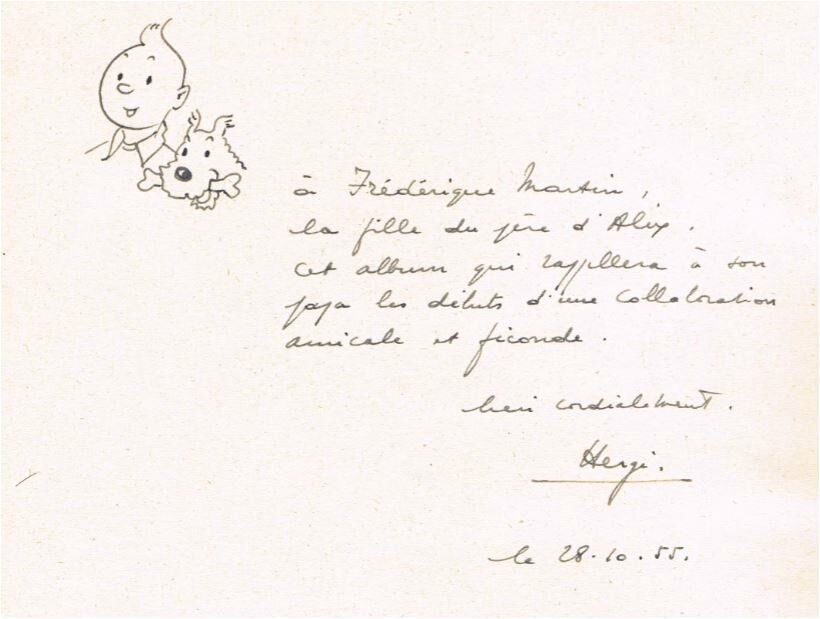 à Frédérique Martin,
la fille du père d'Alix.
cet album qui rappellera à son
papa les débuts d'une collaboration
amicale et féconde.
bien cordialement.
Hergé.
le 28.10.55.